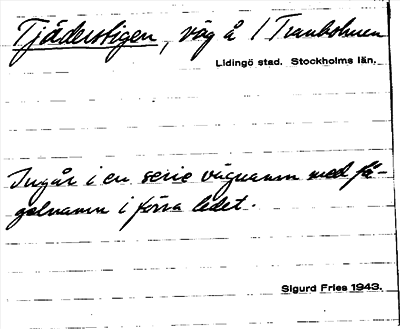 Tjäderstigen, väg å / Tranholmen
Lidingö stad. Stockholms län.
Ingår i en serie vägnamn med få-
gelnamn i förra ledet.
Sigurd Fries 1943.